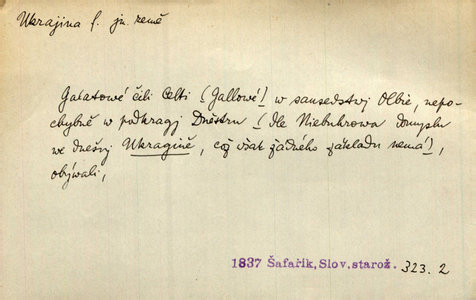 Ukrajina f. jm. země
Galatowé čili Celti (Gallowé) w sausedstwj Olbie, nepo-
chybně w podkragj Dněstru (dle Niebuhrowa domyslu
we dnešnj Ukragině, což však žádného základu nemá),
obýwali,
1837 Šafařík, Slov. starož. 323. 2